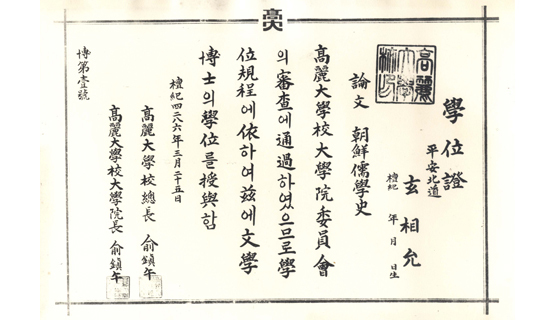 高大
學位證
平安北道
玄相允
檀紀 年 月 日生
高麗
大學
校印
論文 朝鮮儒學史
高麗大學校大學院委員會
의審査에通過하였으므로學
位規程에依하여玆에文學
博士의學位를授與함
檀紀四二八六年三月二十五日
高麗大學校總長 兪鎭午
高麗大學校大學院長 兪鎭午
博第壹號